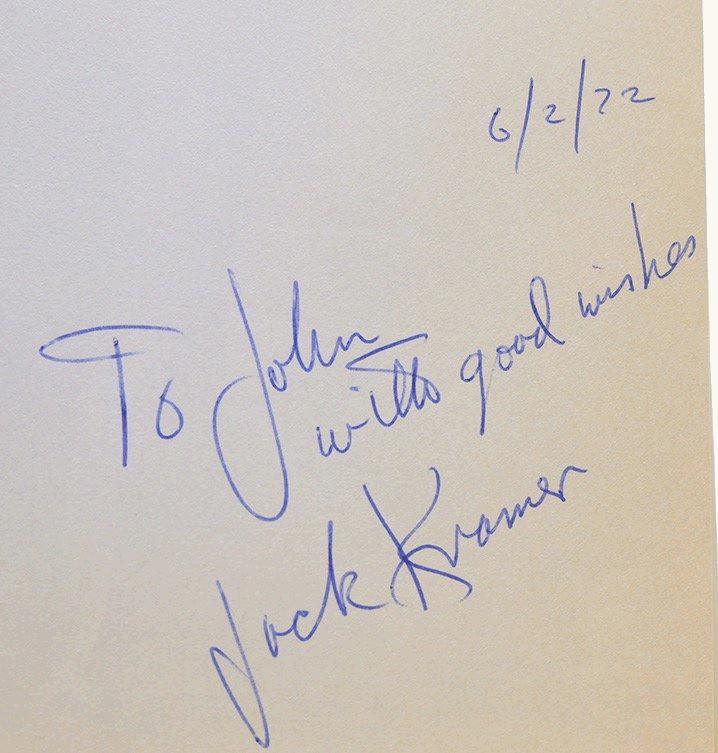 6/2/22
To John
with good wishes
Jack Kramer